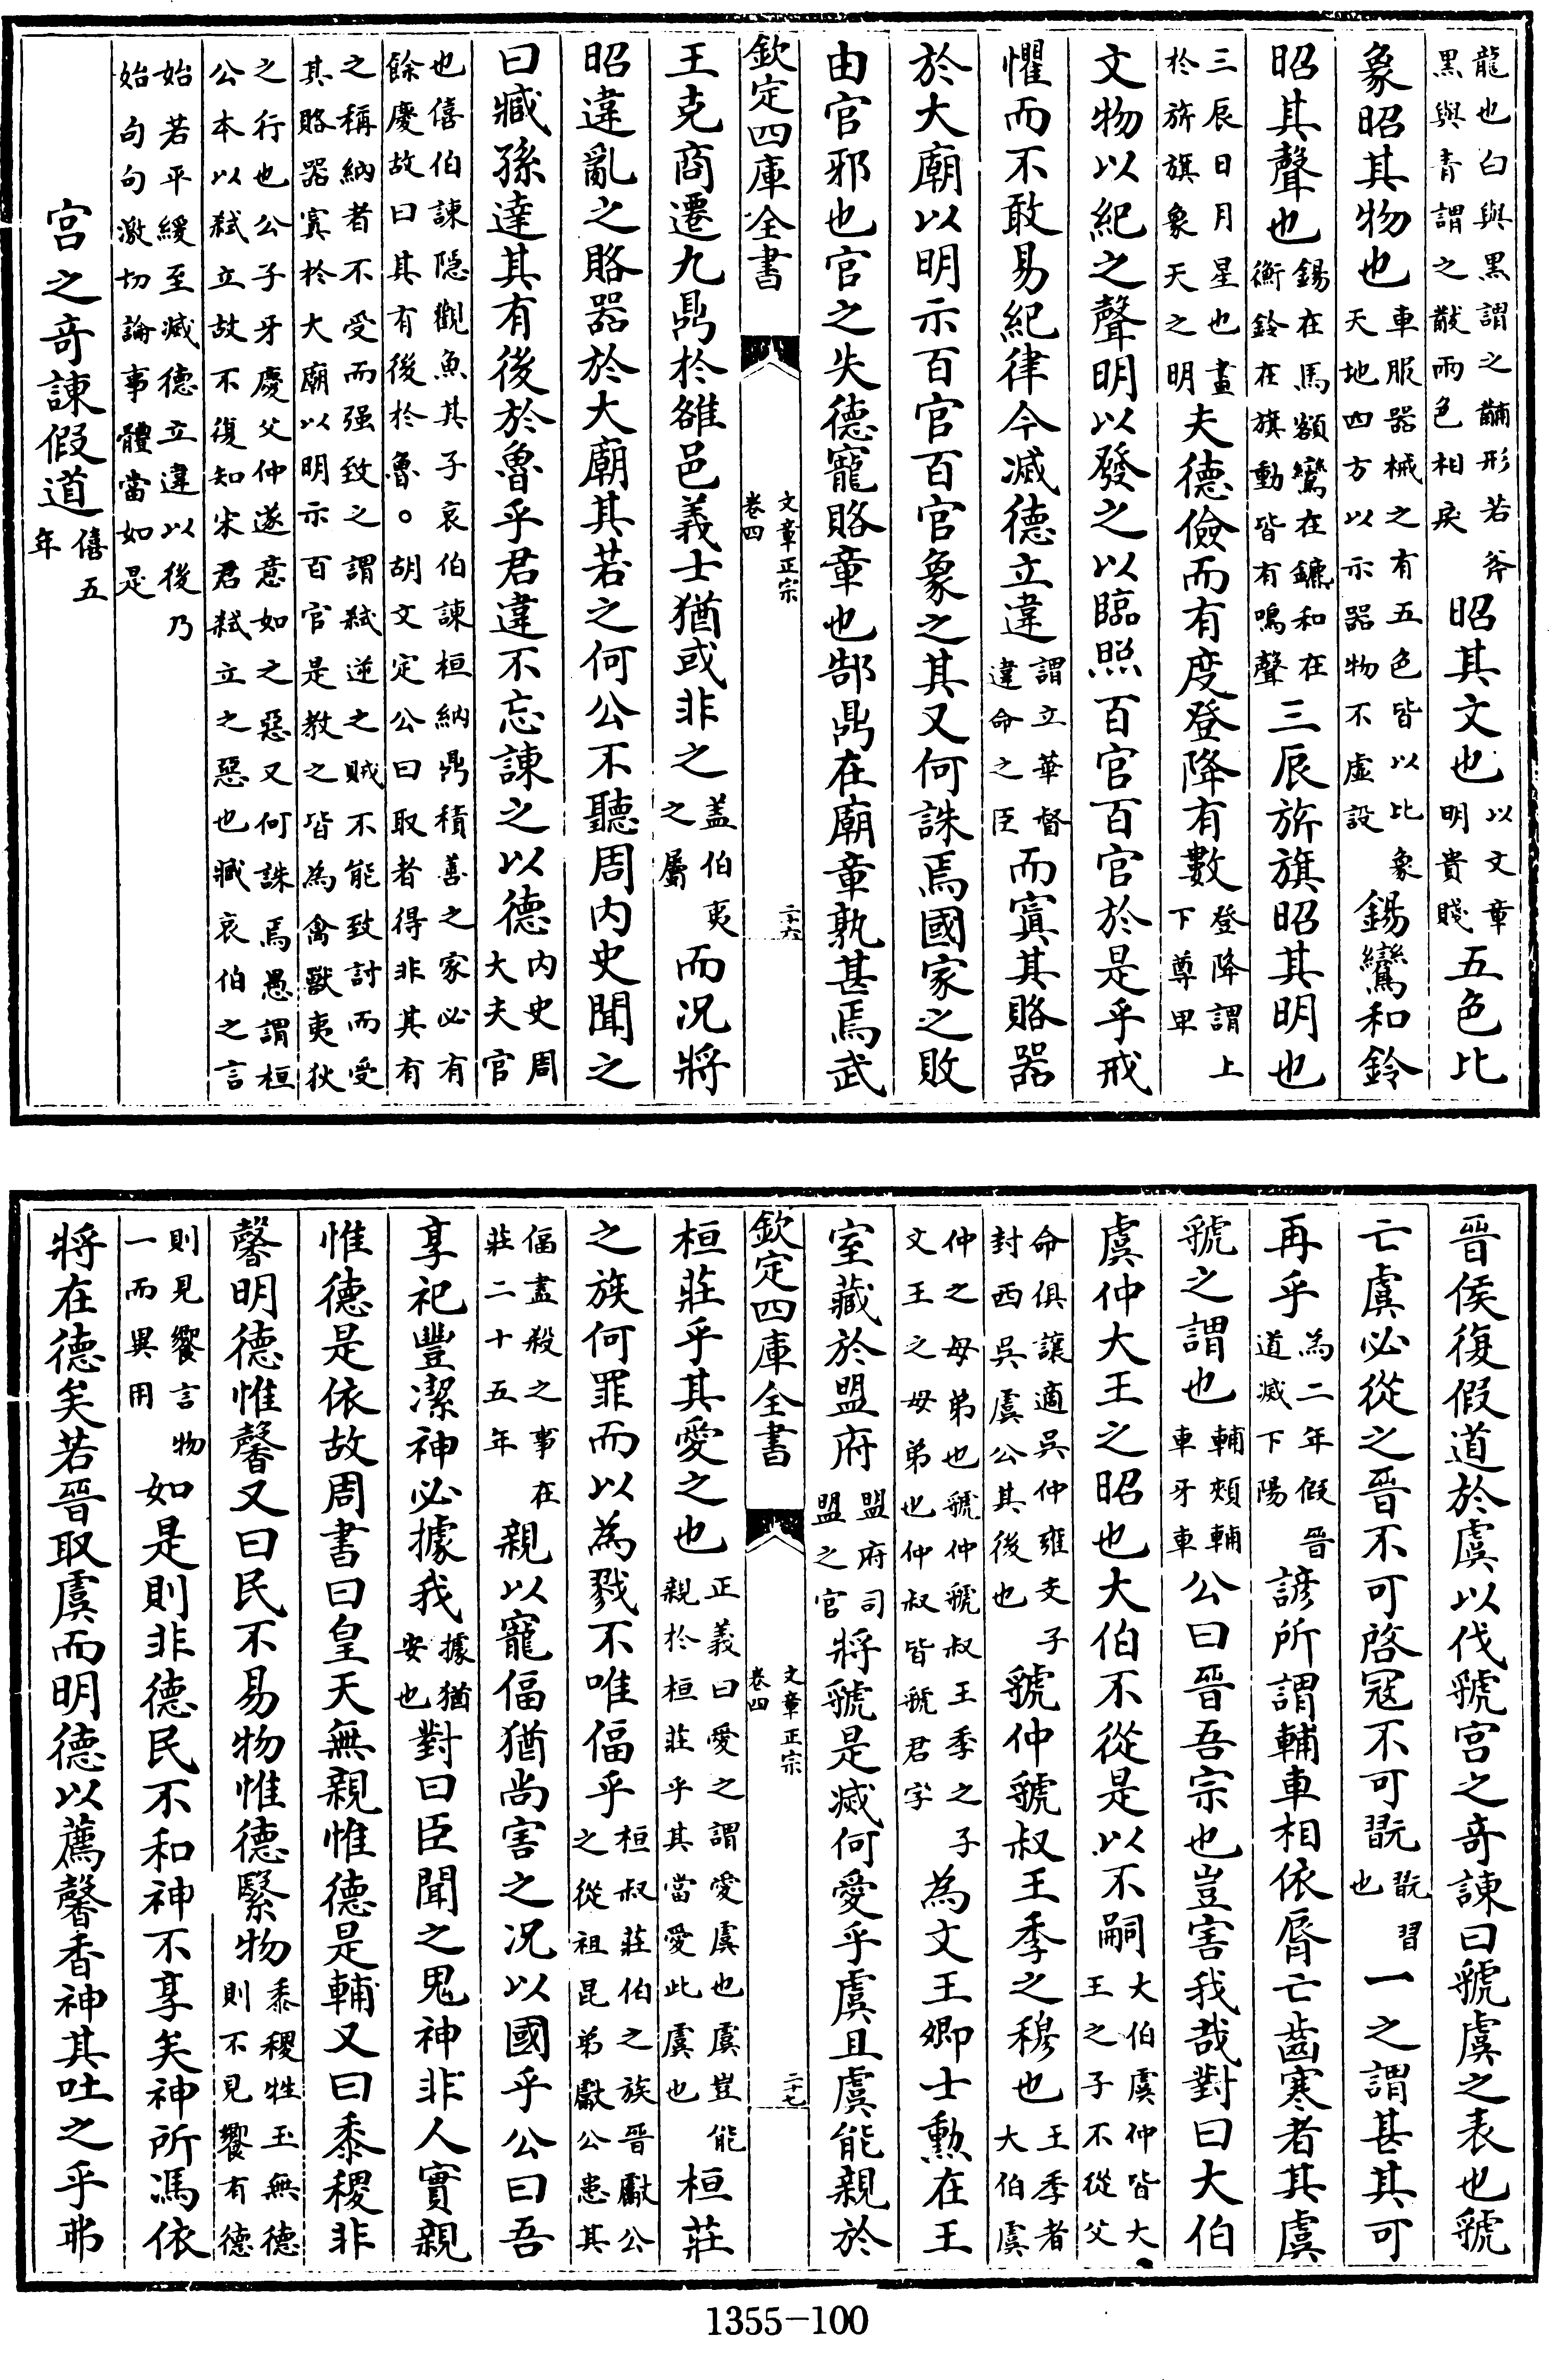 龍也白與黑謂之黼形若斧黑與青謂之黻兩色相戾昭其文也以文章明貴賤五色比
象昭其物也車服器械之有五色皆以比象天地四方以示器物不虛設鍚鸞和鈴
昭其聲也鍚在馬額鸞在鑣和在衡鈴在旗動皆有鳴聲三辰旂旗昭其明也
三辰日月星也畫於旂旗象天之明夫德儉而有度登降有數登降謂上下尊卑
文物以紀之聲明以發之以臨照百官百官於是乎戒
懼而不敢易紀律今滅德立違謂立華督違命之臣而寘其賂器
於大廟以明示百官百官象之其又何誅焉國家之敗
由官邪也官之失德寵賂章也郜鼎在廟章孰甚焉武
欽定四庫全書 文章正宗卷四 二十六
王克商遷九鼎於雒邑義士猶或非之盖伯夷之屬而況將
昭違亂之賂器於大廟其若之何公不聽周內史聞之
曰臧孫達其有後於魯乎君違不忘諫之以德內史周大夫官
也僖伯諫隱觀魚其子哀伯諫桓納鼎積善之家必有餘慶故曰其有後於魯。胡文定公曰取者得非其有
之稱納者不受而强致之謂弑逆之賊不能致討而受其賂器寘於大廟以明示百官是教之皆為禽獸夷狄
之行也公子牙慶父仲遂意如之惡又何誅焉愚謂桓公本以弑立故不復知宋君弑立之惡也臧哀伯之言
始若平緩至滅德立違以後乃始句句激切論事體當如是
宮之奇諫假道僖五年
晉侯復假道於虞以伐虢宮之奇諫曰虢虞之表也虢
亡虞必從之晉不可啓寇不可翫翫習也一之謂甚其可
再乎為二年假晉道滅下陽諺所謂輔車相依脣亡齒寒者其虞
虢之謂也輔頰輔車牙車公曰晉吾宗也豈害我哉對曰大伯
虞仲大王之昭也大伯不從是以不嗣大伯虞仲皆大王之子不從父
命俱讓適吳仲雍支子封西吳虞公其後也虢仲虢叔王季之穆也王季者大伯虞
仲之母弟也虢仲虢叔王季之子文王之母弟也仲叔皆虢君字為文王卿士勲在王
室藏於盟府盟府司盟之官將虢是滅何愛乎虞且虞能親於
欽定四庫全書 文章正宗卷四 二十七
桓莊乎其愛之也正義曰愛之謂愛虞也虞豈能親於桓莊乎其當愛此虞也桓莊
之族何罪而以為戮不唯偪乎桓叔莊伯之族晉獻公之從祖昆弟獻公患其
偪盡殺之事在莊二十五年親以寵偪猶尚害之況以國乎公曰吾
享祀豐潔神必據我據猶安也對曰臣聞之鬼神非人實親
惟德是依故周書曰皇天無親惟德是輔又曰黍稷非
馨明德惟馨又曰民不易物惟德繄物黍稷牲玉無德則不見饗有德
則見饗言物一而異用如是則非德民不和神不享矣神所馮依
將在德矣若晉取虞而明德以薦馨香神其吐之乎弗
1355-100